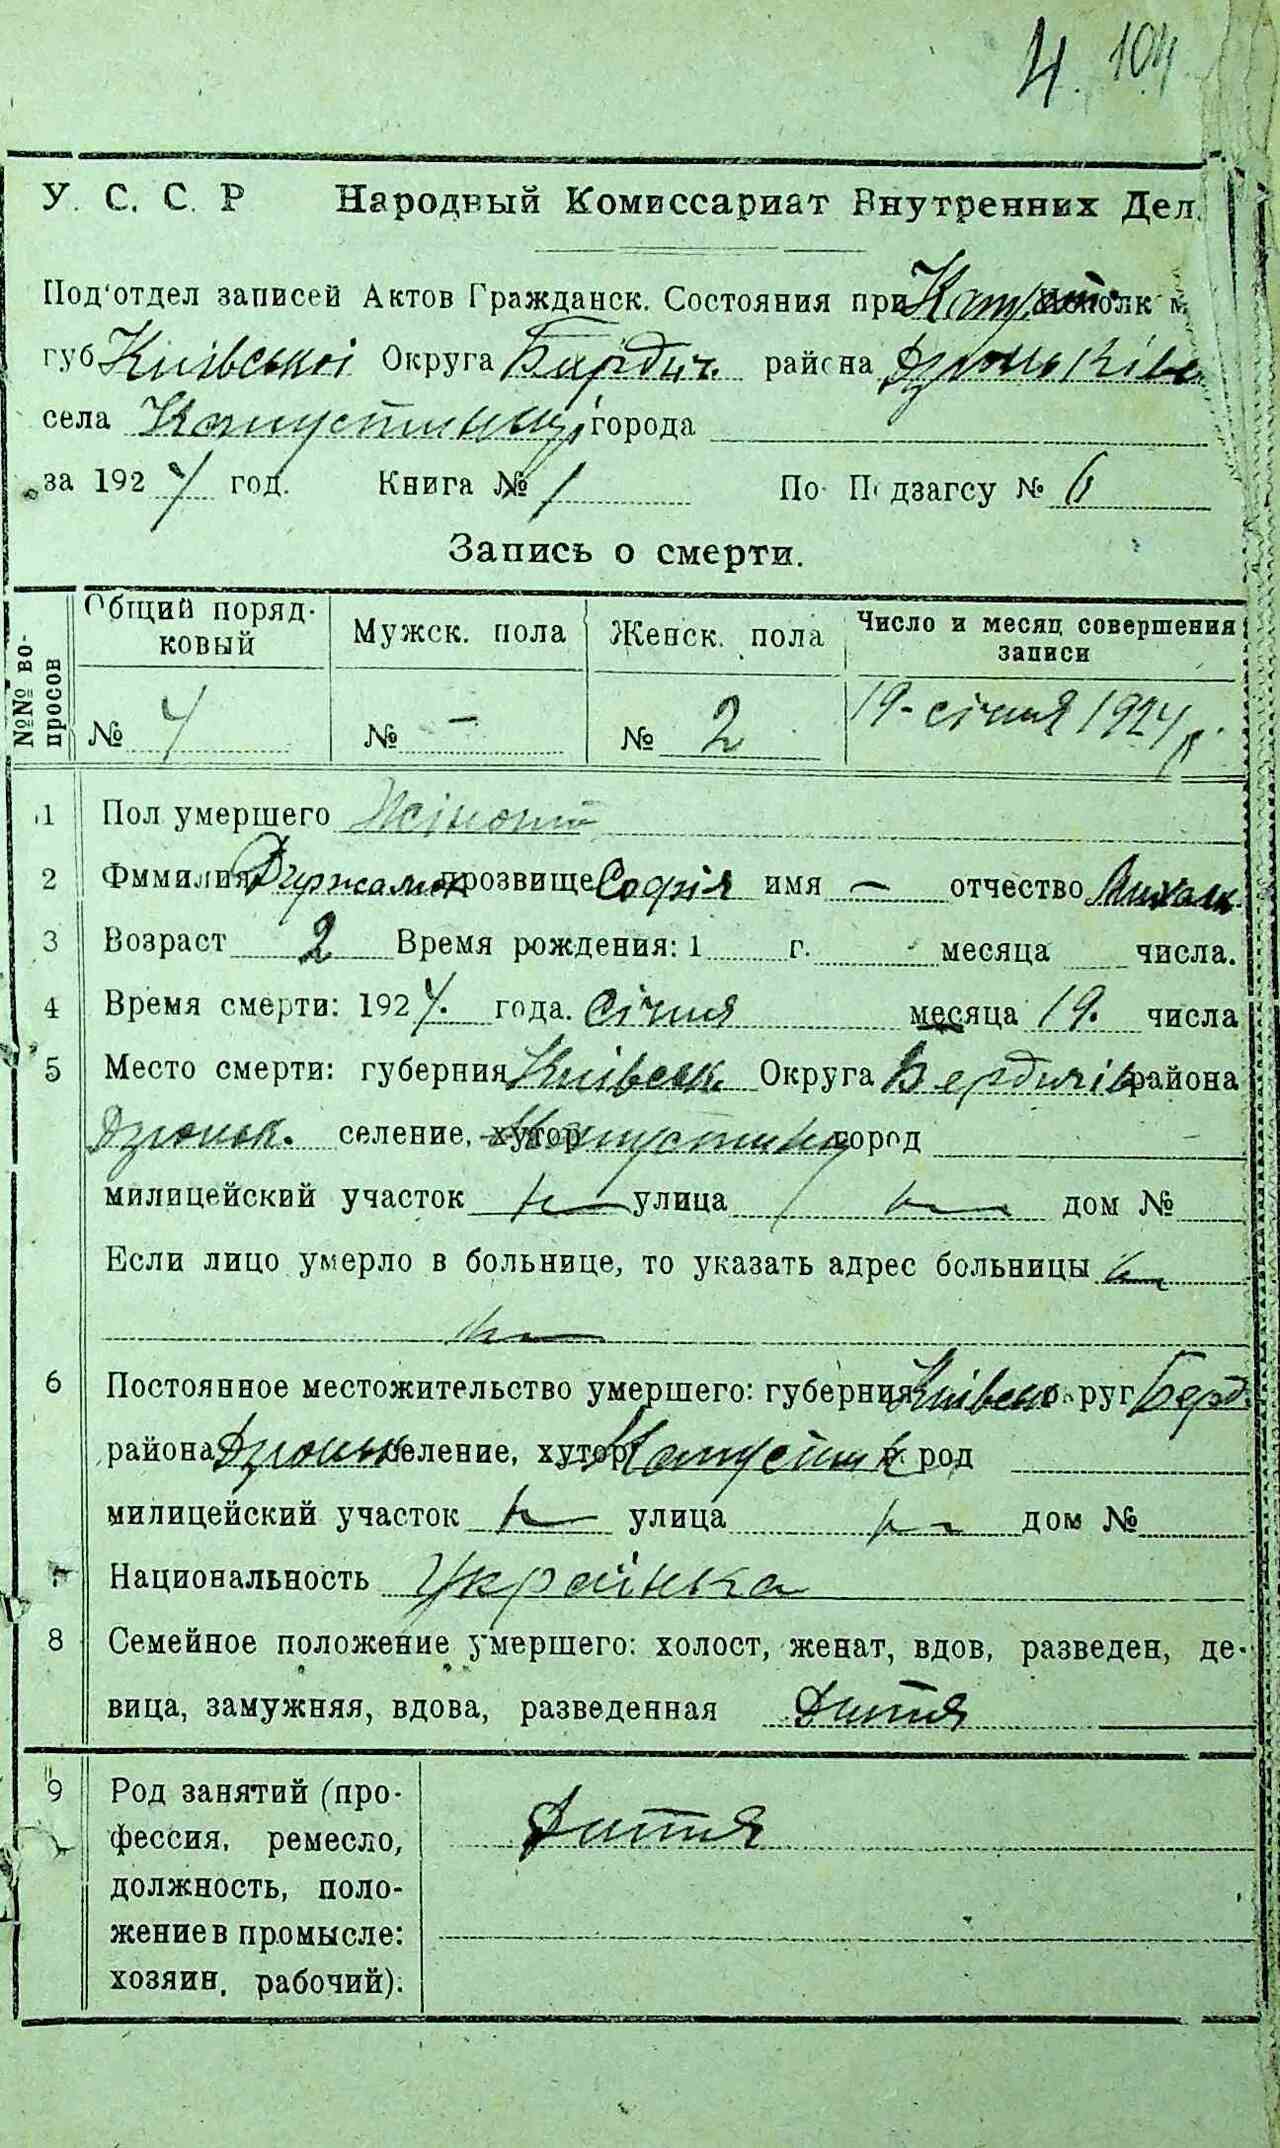 4. 104
У. С. С. Р Народный Комиссариат Внутренних Дел.
Под'отдел записей Актов Гражданск. Состояния при исполк м
губ Київської Округа Бардич. района Дзюньків
села Капустинці города
за 1924 год. Книга № 1 По Подзагсу № 6
Запись о смерти.
№№ во-
просов
Общий поряд-
ковый
Мужск. пола
Женск. пола
Число и месяц совершения
записи
№ 4 № - № 2 19-січня 1924 р.
1 Пол умершего Жіночий
2 Фммилия прозвище Софія имя — отчество
3 Возраст 2 Время рождения: 1 г. месяца числа.
4 Время смерти: 1924. года. Січня месяца 19. числа
5 Место смерти: губерния Київськ. Округа Бердичів района
Дзюньк. селение, хутор город
милицейский участок улица дом №
Если лицо умерло в больнице, то указать адрес больницы
6 Постоянное местожительство умершего: губерния Київськ округ Берд.
района Дзюньк селение, хутор город
милицейский участок улица дом №
7 Национальность Українка
8 Семейное положение умершего: холост, женат, вдов, разведен, де-
вица, замужняя, вдова, разведенная Дитя
9 Род занятий (про-
фессия, ремесло,
должность, поло-
жение в промысле:
хозяин, рабочий).
Дитя